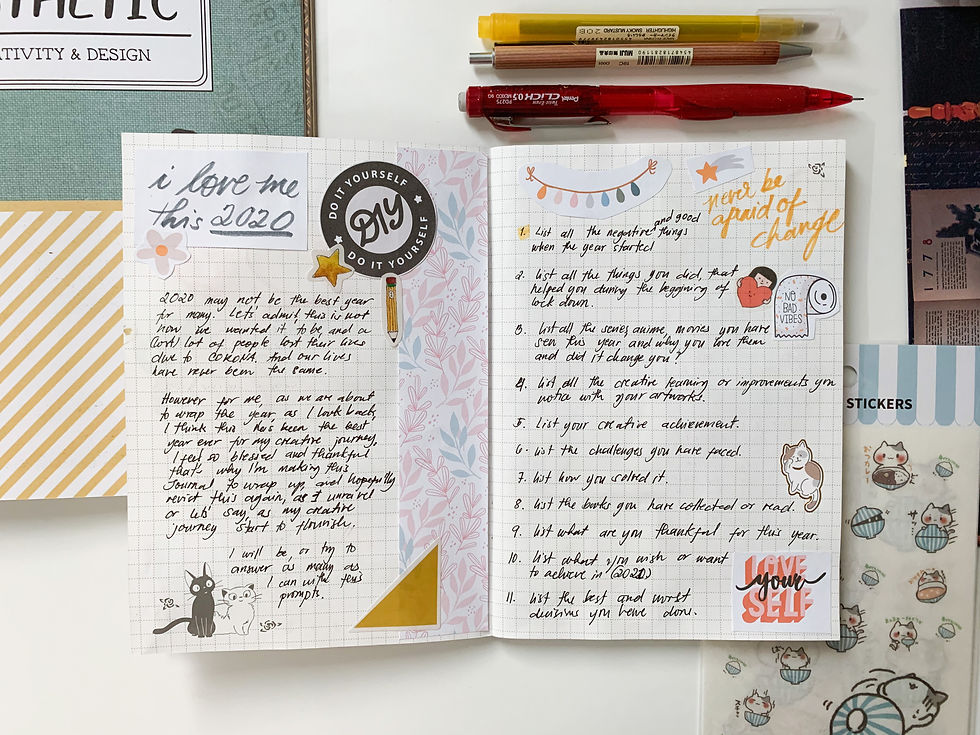 THETIC
ATIVITY & DESIGN
HIGHLIGHTER SMOKY MUSTARD 208
MUJI 無印良品
4547718281190
Pentel
CLICK 0.5
PD275
MEXICO
i love me
this 2020
DO IT YOURSELF
DIY
DO IT YOURSELF
2020 may not be the best year
for many. Let's admit, this is not
how we wanted it to be, and a
lot of people lost their lives
due to CORONA. And our lives
have never been the same.
However for me, as we are about
to wrap the year, as I look back,
I think this has been the best
year ever for my creative journey,
I feel so blessed and thankful
that's why I'm making this
Journal to wrap up, and hopefully
revisit this again, as I unravel
or lets say, as my creative
journey start to flourish.
I will be, or try to
answer as many as
I can with this
prompts.
never be
afraid of
change
1. List all the negative and good things
when the year started
2. List all the things you did that
helped you during the beggining of
lock down.
3. List all the series, anime, movies you have
seen this year and why you love them
and did it change you?
4. List all the creative learning or improvements you
notice with your artworks.
5. List your creative achievement.
6. List the challenges you have faced.
7. List how you solved it.
8. List the books you have collected or read.
9. List what are you thankful for this year.
10. List what you wish or want
to achieve in (2021)
11. List the best and worst
decisions you have done.
NO
BAD
VIBES
LOVE
your
SELF
1778
STICKERS